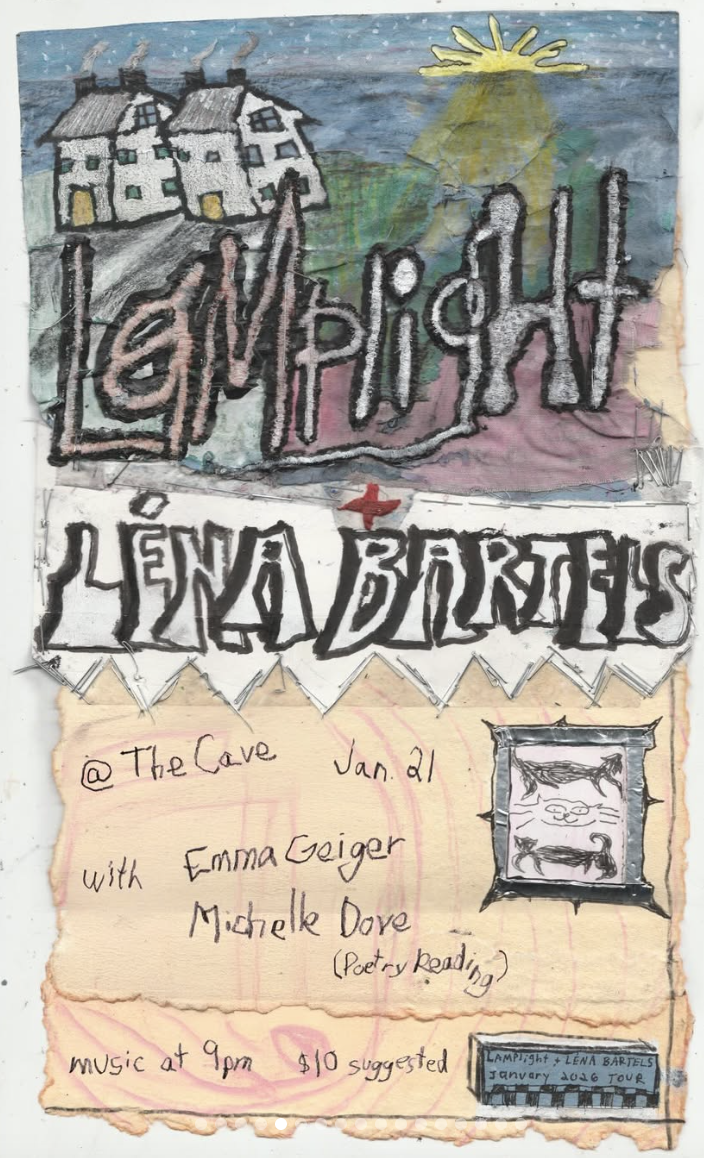 LaMplight
+
LÉNA BARTELS
@ The Cave Jan. 21
with Emma Geiger
Michelle Dove
(Poetry Reading)
music at 9pm $10 suggested
LAMPlight + LÉNA BARTELS
January 2026 TOUR